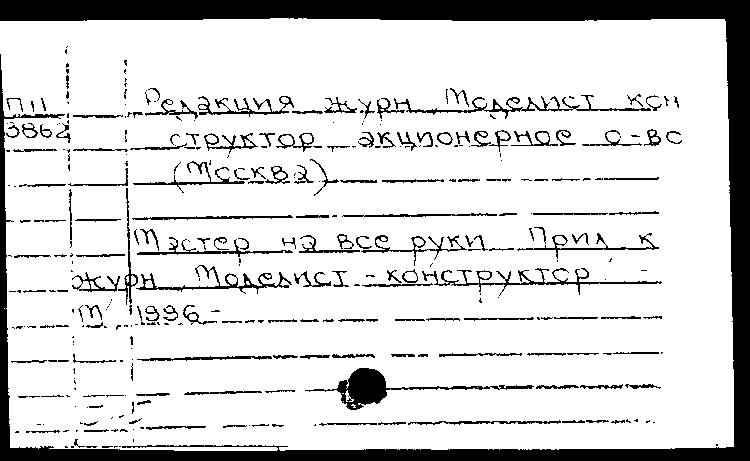 П11 Редакция журн. Моделист кон
3862 структор, акционерное о-во
(Москва)
Мастер на все руки. Прил. к
журн. Моделист-конструктор. -
М., 1996-